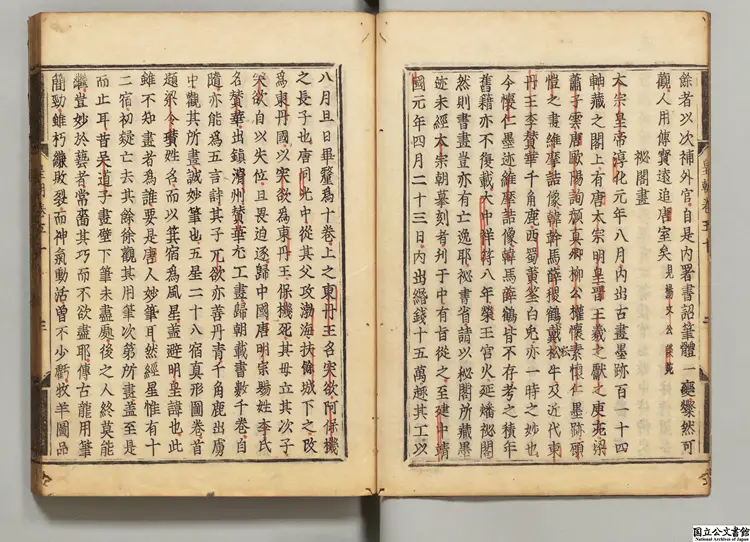 餘者以次補外官自是內署書詔筆體一變粲然可
觀人用傳寶遠追唐室矣 見楊文公談苑
祕閣畫
太宗皇帝淳化元年八月內出古畫墨跡百一十四
軸藏之閣上有唐太宗明皇晉王羲之獻之庾亮梁
蕭子雲唐歐陽詢顏真卿柳公權懷素懷仁墨跡顧
愷之畫維摩詰像韓幹馬薛稷鶴戴松牛及近代東
丹王李贊華千角鹿西蜀黃筌白兔亦一時之妙也
今懷仁墨迹維摩詰像韓馬薛鶴皆不存考之積年
舊籍亦不復載大中祥符八年榮王宮火延燔祕閣
然則書畫豈亦有亡逸耶祕書省請以祕閣所藏墨
迹未經太宗朝摹刻者刋于中有旨從之至建中靖
國元年四月二十三日內出緡錢十五萬趣其工以
八月旦日畢釐為十卷上之東丹王名突欲阿保機
之長子也唐同光中從其父攻渤海扶餘城下之改
為東丹國以突欲為東丹王保機死其母立其次子
突欲自以失位且畏迫逐歸中國唐明宗賜姓李氏
名贊華出鎮滑州贊華尤工畫歸朝載書數千卷自
隨亦能為五言詩其子兀欲亦善丹青千角鹿出虜
中觀其所畫誠妙筆也五星二十八宿真形圖卷首
題梁令瓚姓名而以箕宿為風星蓋避明皇諱也此
雖不知畫者為誰要是唐人妙筆耳然經星惟有十
二宿初疑亡去其餘徐觀其用筆次第所畫蓋至是
而止耳昔吳道子畫壁下筆未盡處後之人終莫能
繼豈妙於藝者常嗇其巧而不欲盡耶傳古龍用筆
簡勁雖朽縑敗發而神氣動活曾不少虧牧羊圖品
国立公文書館
National Archives of Japan